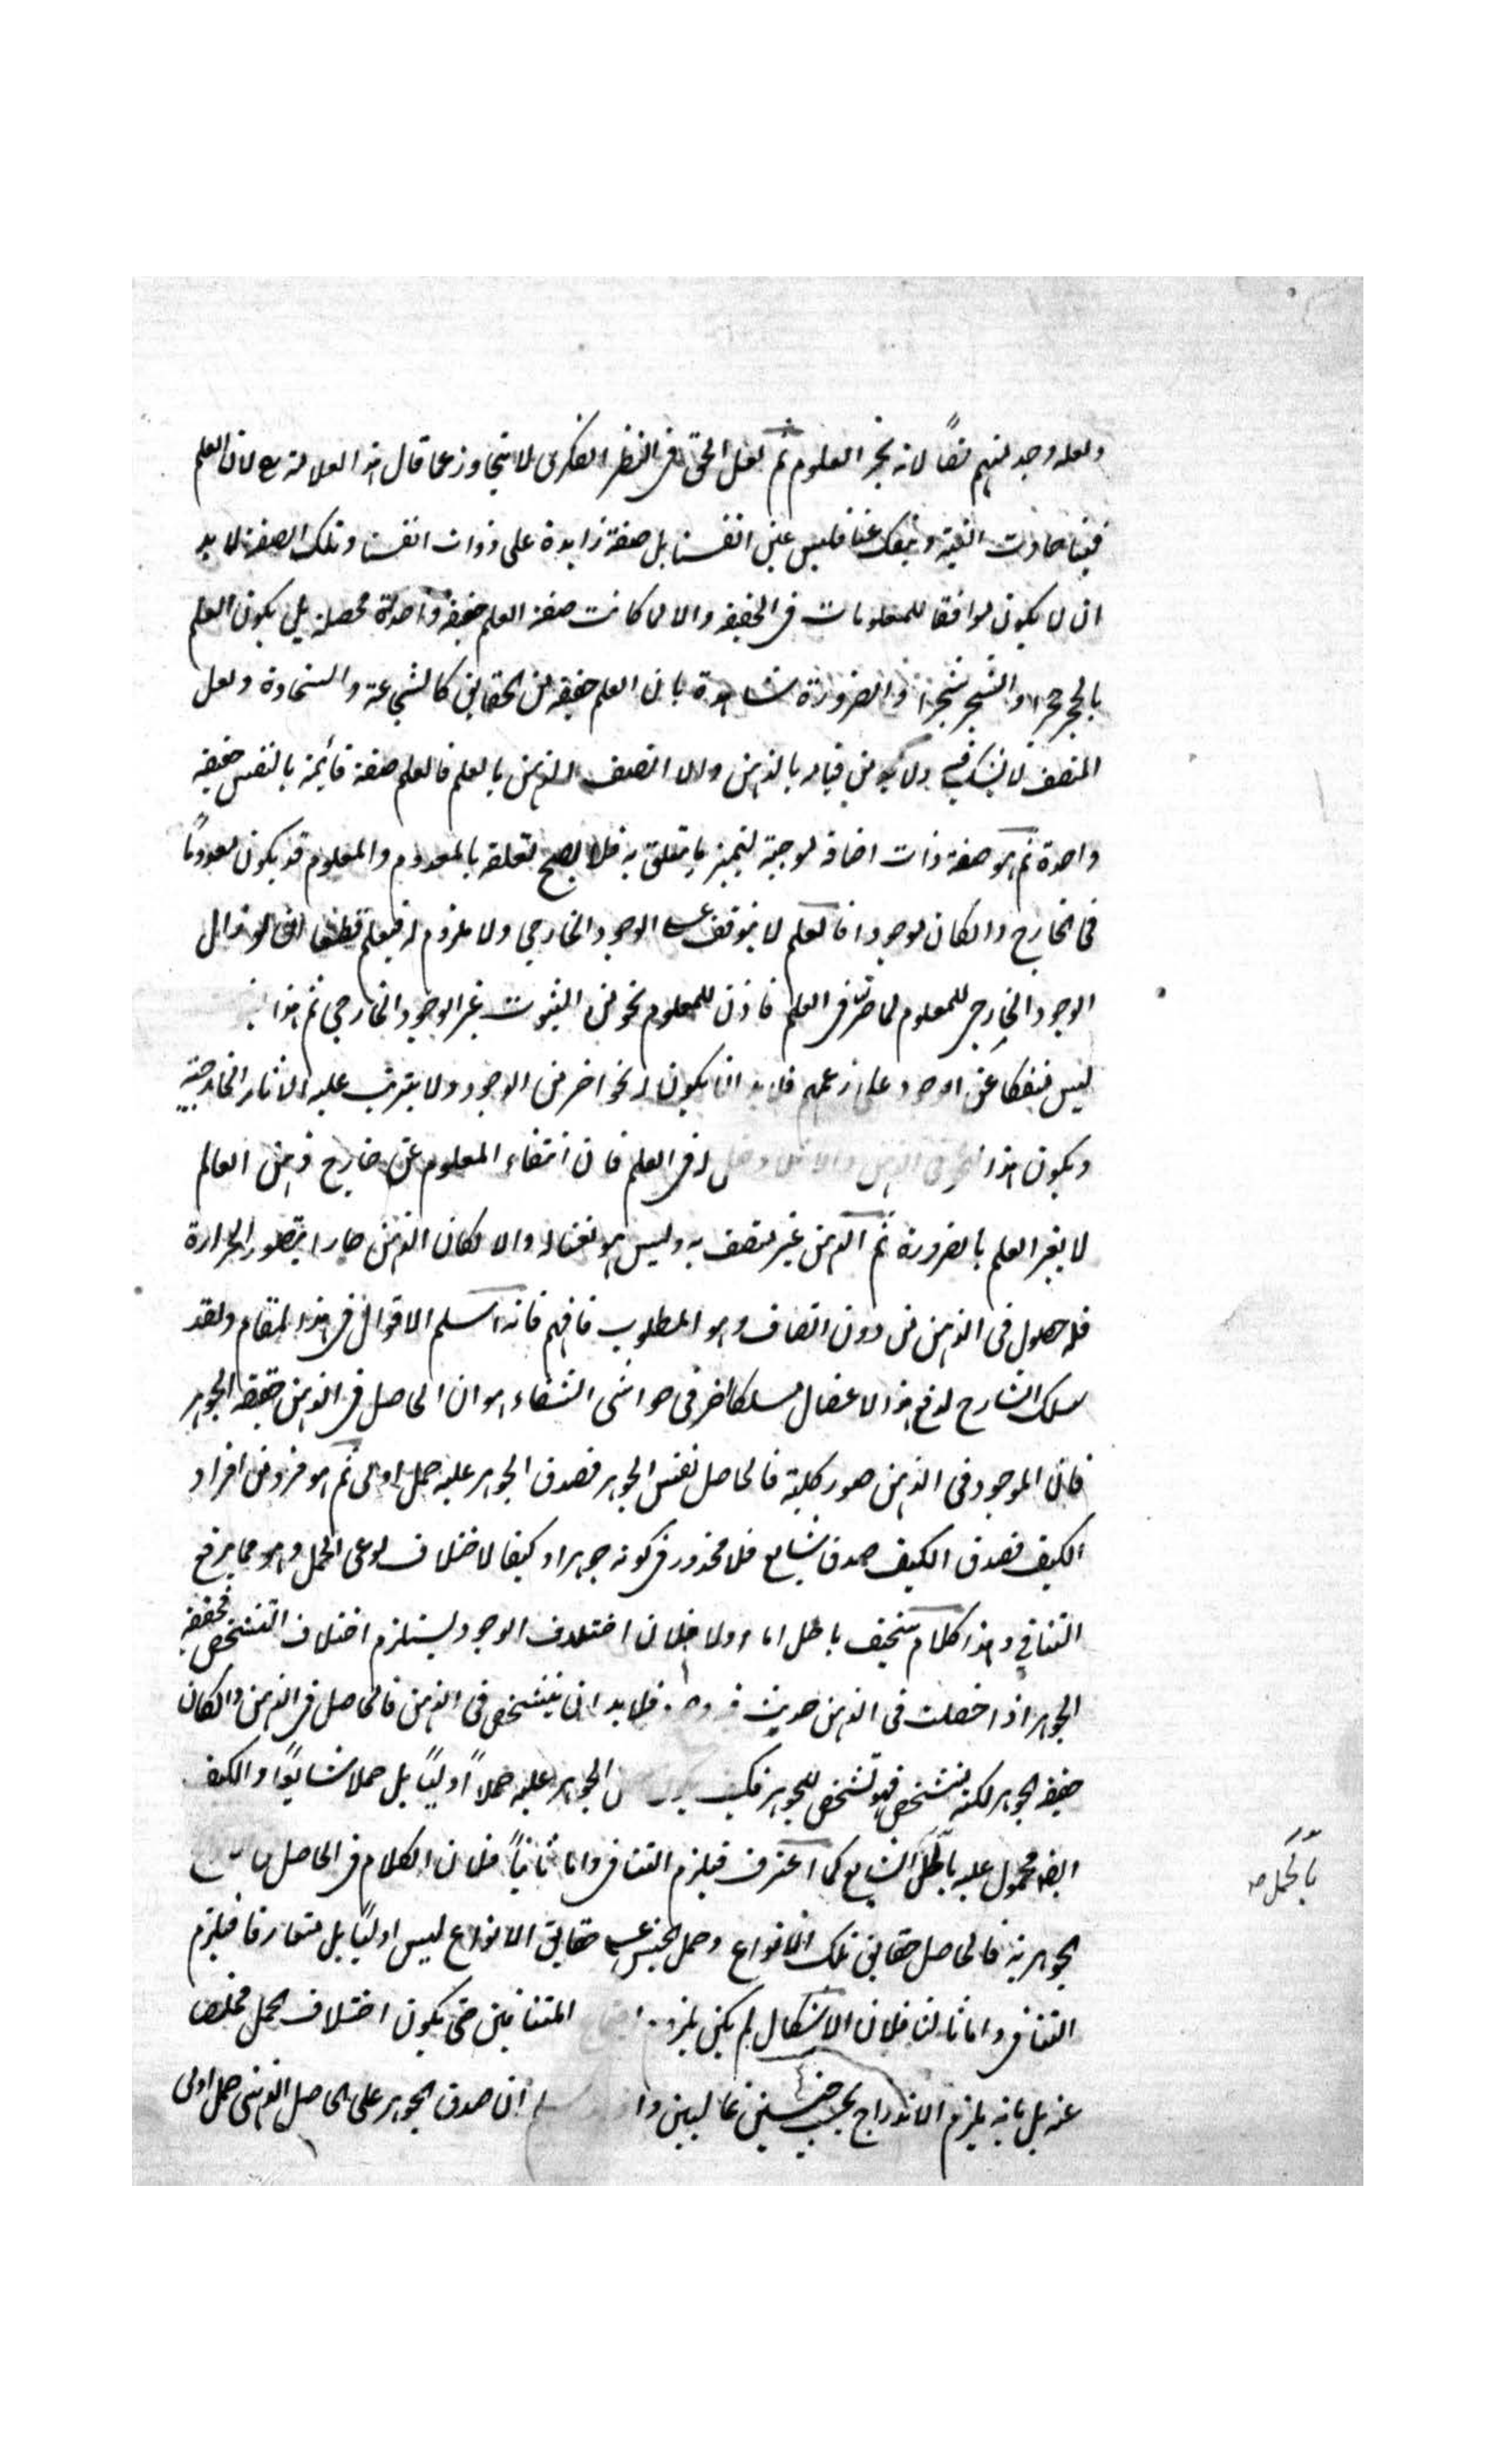 ولعله وجد منهم نصاً لانه بحر العلوم ثم لعل الحق فى النظر الفكرى لا يتجاوز عما قال هذا العلامة لان العلم
فينا حادث البتة وينفك عنا فليس عين انفسنا بل صفة زايدة على ذوات انفسنا وتلك الصفة لا بد
ان لا يكون موافقا للمعلومات فى الحقيقة والا لما كانت صفة العلم حقيقة واحدة محصلة بل يكون العلم
بالحجر حجرا والشجر شجرا والضرورة شاهدة بان العلم حقيقة من الحقايق كالشجاعة والسخاوة ولعل
المنصف لا يشك فيه ولا بد من قيامه بالذهن والا لما اتصف الذهن بالعلم فالعلم صفة قائمة بالنفس حقيقة
واحدة ثم هو صفة ذات اضافة موجبة لتميز ما يتعلق به فلا يصح تعلقه بالمعدوم والمعلوم قد يكون معدومًا
فى الخارج وان كان موجودا فالعلم لا يتوقف على الوجود الخارجي ولا ملزوم له فيعلم قطعا انه لو زال
الوجود الخارجى للمعلوم لما ضر فى العلم فاذن للمعلوم نحو من الثبوت غير الوجود الخارجي ثم هذا
ليس منفكا عن الوجود على زعمهم فلا بد ان يكون له نحو اخر من الوجود ولا يترتب عليه الاثار الخارجية
ويكون هذا النحو فى الذهن والا فلا دخل له فى العلم فان انتفاء المعلوم عن خارج ذهن العالم
لا يغير العلم بالضرورة ثم الذهن غير متصف به وليس هو نعتا له والا لكان الذهن حارا بتصور الحرارة
فله حصول فى الذهن من دون اتصاف وهو المطلوب فافهم فانه اسلم الاقوال فى هذا المقام ولقد
سلك الشارح لدفع هذا الاعضال مسلكا اخر فى حواشى الشفاء هو ان الحاصل فى الذهن حقيقة الجوهر
فان الموجود فى الذهن صور كلية فالحاصل نفس الجوهر فصدق الجوهر عليه حمل اولى ثم هو فرد من افراد
الكيف فصدق الكيف صدق شايع فلا محذور فى كونه جوهرا وكيفا لاختلاف نوعى الحمل وهو مما يرفع
التنافي وهذا كلام سخيف باطل اما اولا فلان اختلاف الوجود يستلزم اختلاف التشخص فحقيقة
الجوهر اذا حصلت فى الذهن فلا بد ان يتشخص فى الذهن فالحاصل فى الذهن وان كان
حقيقة الجوهر لكنه متشخص فهو تشخص للجوهر فكيف يكون الجوهر عليه حملاً اوليًا بل حملا شايعًا والكيف
ايضا محمول عليه بالحمل الشايع كما اعترف فيلزم التنافى واما ثانياً فلان الكلام فى الحاصل
الجوهرية فالحاصل حقايق تلك الانواع وحمل الجنس على حقايق الانواع ليس اوليًا بل متعارفا فيلزم
التنافى واما ثالثا فلان الاشكال لم يكن بلزوم المتنافيين حتى يكون اختلاف الحمل مخلصا
عنه بل بانه يلزم الاندراج تحت جنسين عاليين ان صدق الجوهر على الحاصل الذهنى حمل اولى
بالحمل صح